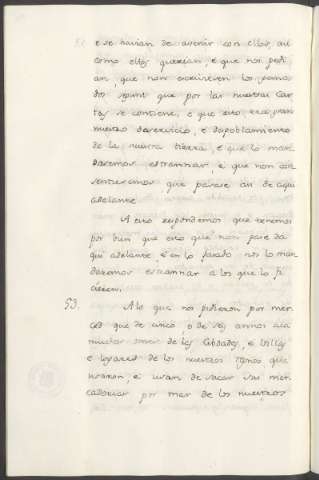 e se havian de avenir con ellos, asi
como ellos querian, e que nos pedi-
an, que non escriviesen los pena-
dos segunt que por las nuestras Car-
tas se contiene, e que esto, era grand
nuestro deservicio, e despoblamiento
de la nuestra tierra, e que lo man-
dasemos estrannar, e que non con-
sentiesemos que pasase asi de aqui
adelante.
A esto respondemos que tenemos
por bien que esto que non pase da-
qui adelante, e en lo pasado nos lo man-
daremos escarmentar a los que lo fi-
cieren.
53. A lo que nos pidieron por mer-
ced que de cinco, o de seys annos aca
muchos omes de las Cibdades, e Villas
e logares de los nuestros regnos que
usaron, e usan de sacar sus mer-
cadorias por mar de los nuestros